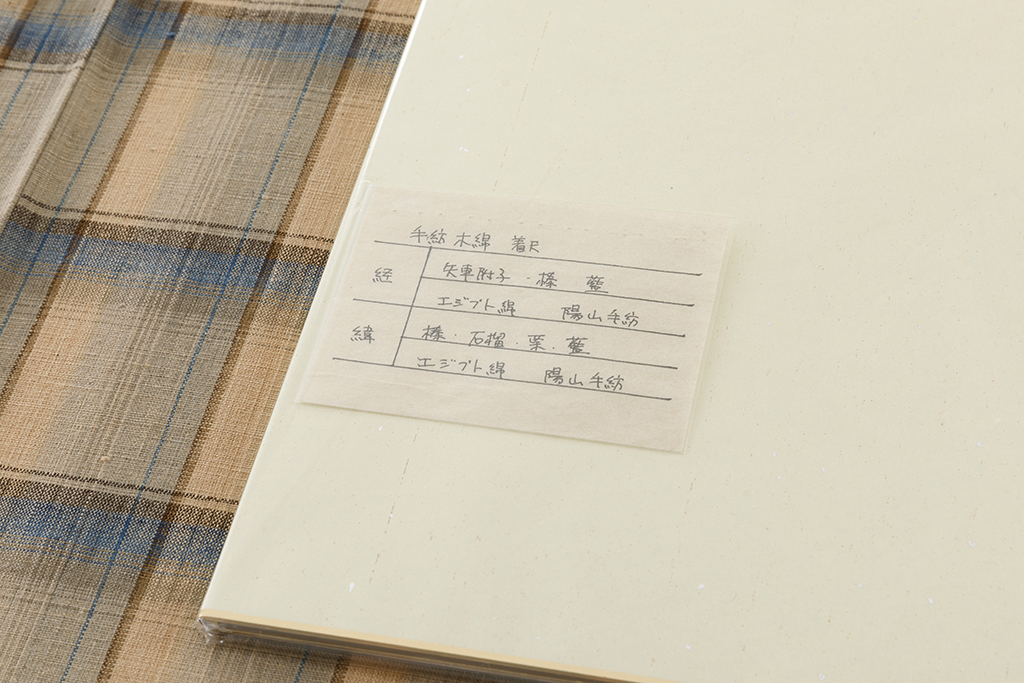 手紡 木綿 着尺
経 矢車附子・榛 藍
エジプト綿 陽山手紡
緯 榛・石榴・栗・藍
エジプト綿 陽山手紡